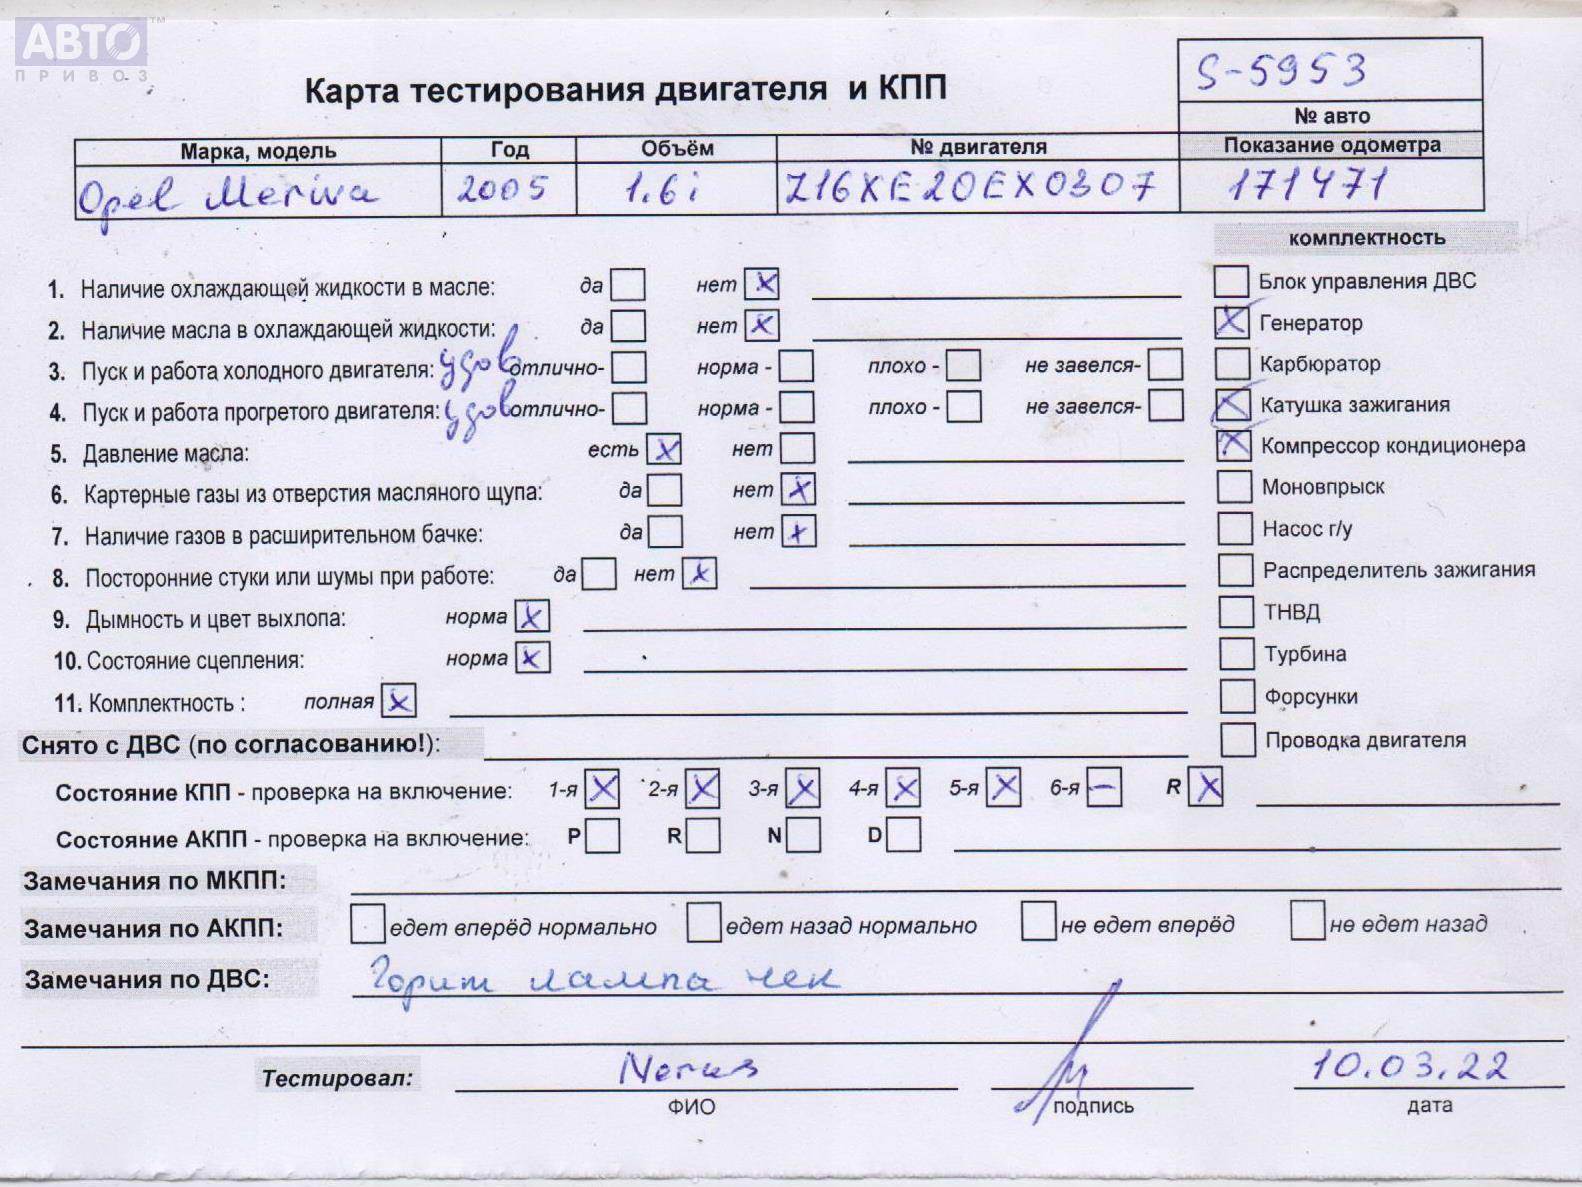 АВТО ™
ПРИВОЗ
S-5953
Карта тестирования двигателя и КПП
№ авто
Марка, модель Год Объём № двигателя Показание одометра
Opel Meriva 2005 1.6i Z16XE20EX0307 171471
комплектность
1. Наличие охлаждающей жидкости в масле: да нет X
Блок управления ДВС
2. Наличие масла в охлаждающей жидкости: да нет X
X Генератор
3. Пуск и работа холодного двигателя: удов отлично- норма - плохо - не завелся-
Карбюратор
4. Пуск и работа прогретого двигателя: удов отлично- норма - плохо - не завелся-
X Катушка зажигания
5. Давление масла: есть X нет
X Компрессор кондиционера
6. Картерные газы из отверстия масляного щупа: да нет X
Моновпрыск
7. Наличие газов в расширительном бачке: да нет X
Насос г/у
8. Посторонние стуки или шумы при работе: да нет X
Распределитель зажигания
9. Дымность и цвет выхлопа: норма X
ТНВД
10. Состояние сцепления: норма X
Турбина
11. Комплектность : полная X
Форсунки
Снято с ДВС (по согласованию!):
Проводка двигателя
Состояние КПП - проверка на включение: 1-я X 2-я X 3-я X 4-я X 5-я X 6-я — R X
Состояние АКПП - проверка на включение: P R N D
Замечания по МКПП:
Замечания по АКПП: едет вперёд нормально едет назад нормально не едет вперёд не едет назад
Замечания по ДВС: Горит лампа чек
Тестировал: 10.03.22
ФИО подпись дата